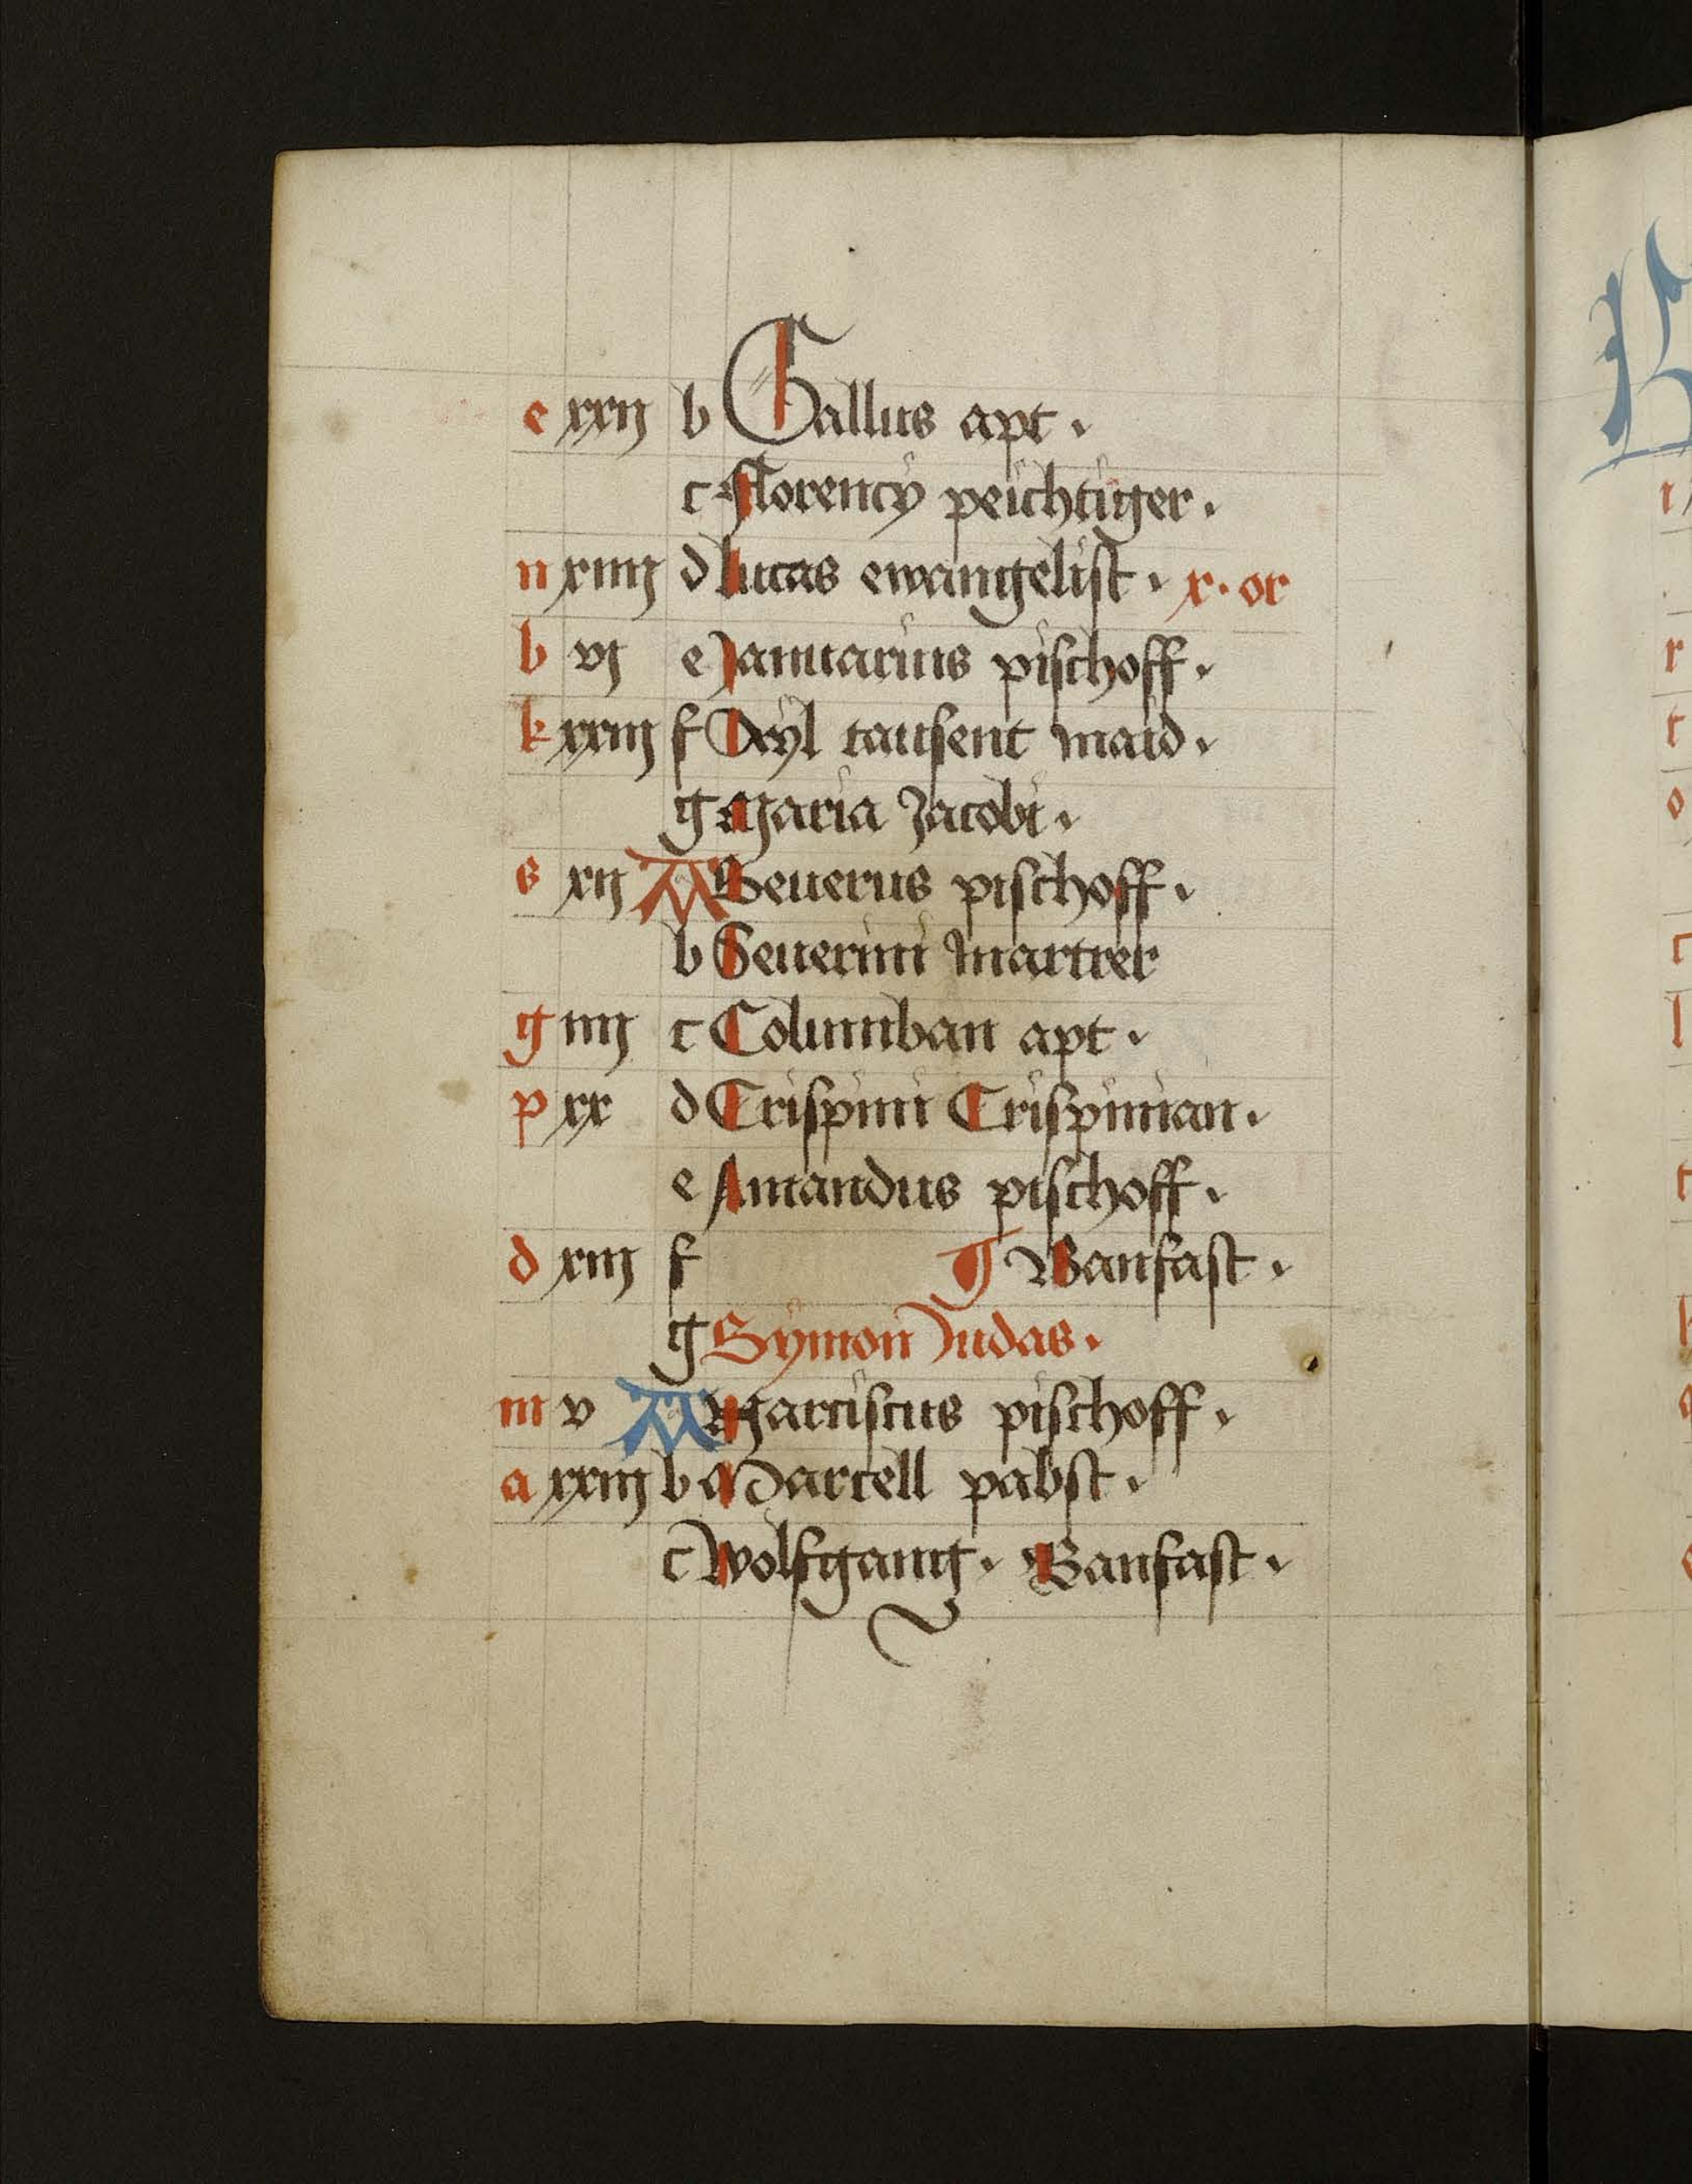 e xxij b Gallus apt.
c Florency peichtiger.
n xiiij d Lucas ewangelist. x. or
b vj e Januarius pischoff.
k xxiij f Ayl tausent maid.
g Maria Jacobi.
s xij A Seuerus pischoff.
b Seuerini martrer
g iiij c Columban apt.
p xx d Crispini Crispinian.
e Amandus pischoff.
d xiij f Banfast.
g Symon Judas.
m v A Narciscus pischoff.
a xxiij b Marcell pabst.
c Wolfgang. Banfast.